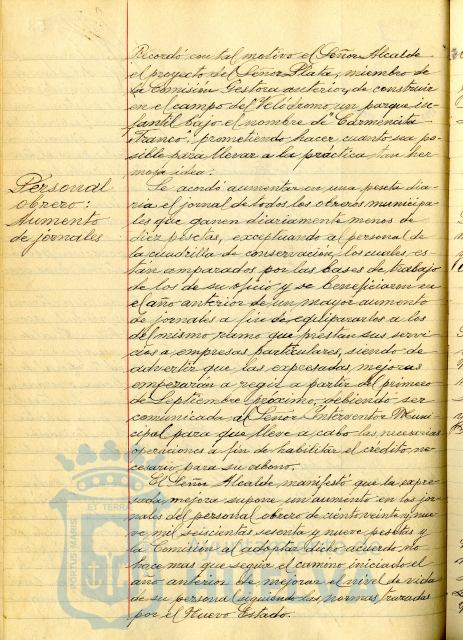 Recordó con tal motivo el Señor Alcalde
el proyecto del Señor Plata, miembro de
la Comisión Gestora anterior, de construir
en el campo del Velódromo un parque in-
fantil bajo el nombre de "Carmencita
Franco", prometiendo hacer cuanto sea po-
sible para llevar a la práctica tan her-
mosa idea.
Personal
obrero:
Aumento
de jornales
Se acordó aumentar en una peseta dia-
ria el jornal de todos los obreros municipa-
les que ganen diariamente menos de
diez pesetas, exceptuando al personal de
la cuadrilla de conservación, los cuales es-
tán amparados por las bases de trabajo
de los de su oficio y se beneficiaron en
el año anterior de un mayor aumento
de jornales a fin de equipararlos a los
del mismo ramo que prestan sus servi-
cios a empresas particulares, siendo de
advertir que las expresadas mejoras
empezarán a regir a partir del primero
de Septiembre próximo, debiendo ser
comunicada al Señor Interventor Muni-
cipal para que lleve a cabo las necesarias
operaciones a fin de habilitar el crédito ne-
cesario para su abono.
El Señor Alcalde manifestó que la expre-
sada mejora supone un aumento en los jor-
nales del personal obrero de ciento veinte y nue-
ve mil seiscientas sesenta y nueve pesetas y
la Comisión al adoptar dicho acuerdo no
hace mas que seguir el camino iniciado el
año anterior de mejorar el nivel de vida
de su personal siguiendo las normas trazadas
por el Nuevo Estado.
ET TERRA